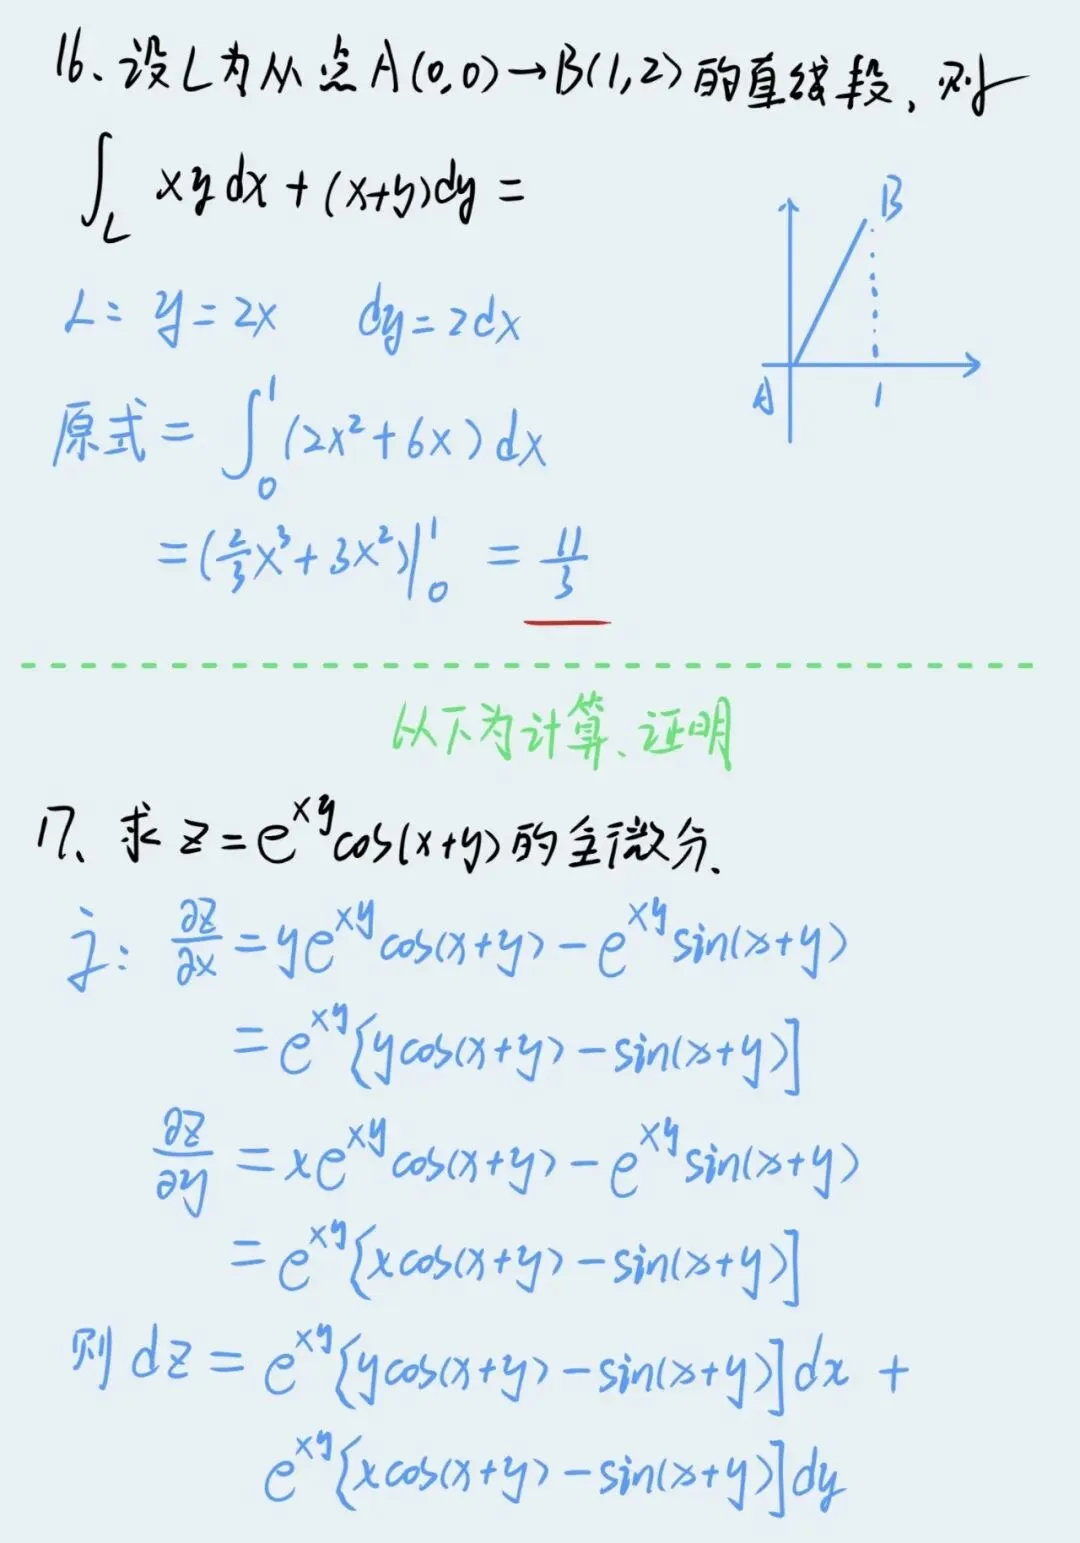 16、设L为从点A(0,0)→B(1,2)的直线段,则
∫_L xydx+(x+y)dy=
B
L: y=2x dy=2dx
A 1
原式=∫_0^1(2x²+6x)dx
=(2/3x³+3x²)|_0^1=11/3
以下为计算、证明
17、求z=e^{xy}cos(x+y)的全微分.
∂z/∂x=ye^{xy}cos(x+y)-e^{xy}sin(x+y)
=e^{xy}[ycos(x+y)-sin(x+y)]
∂z/∂y=xe^{xy}cos(x+y)-e^{xy}sin(x+y)
=e^{xy}[xcos(x+y)-sin(x+y)]
则dz=e^{xy}[ycos(x+y)-sin(x+y)]dx+
e^{xy}[xcos(x+y)-sin(x+y)]dy